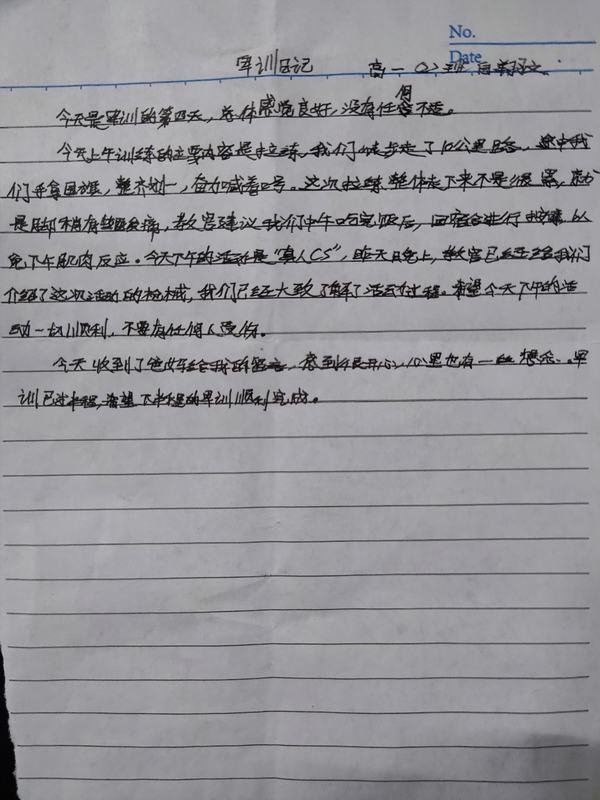 No.
Date
军训日记 高一(2)班
今天是军训的第四天,总体感觉良好,没有任何不适。
今天上午训练的主要内容是拉练,我们徒步走了10公里路。途中我
们手拿国旗,整齐划一,奋力喊着口号。这次拉练整体走下来不是很累,
是脚稍有些疼痛,教官建议我们中午吃完饭后,回宿舍进行拉练以
免下午肌肉反应。今天下午的活动是“真人CS”,昨天晚上,教官已经给我们
介绍了这次活动的枪械,我们已经大致了解了活动过程。希望今天下午的活
动一切顺利,不要有任何人受伤。
今天收到了爸妈给我的留言,感到很开心,心里也有一些想念。军
训已过半程,希望下半程的军训顺利完成。